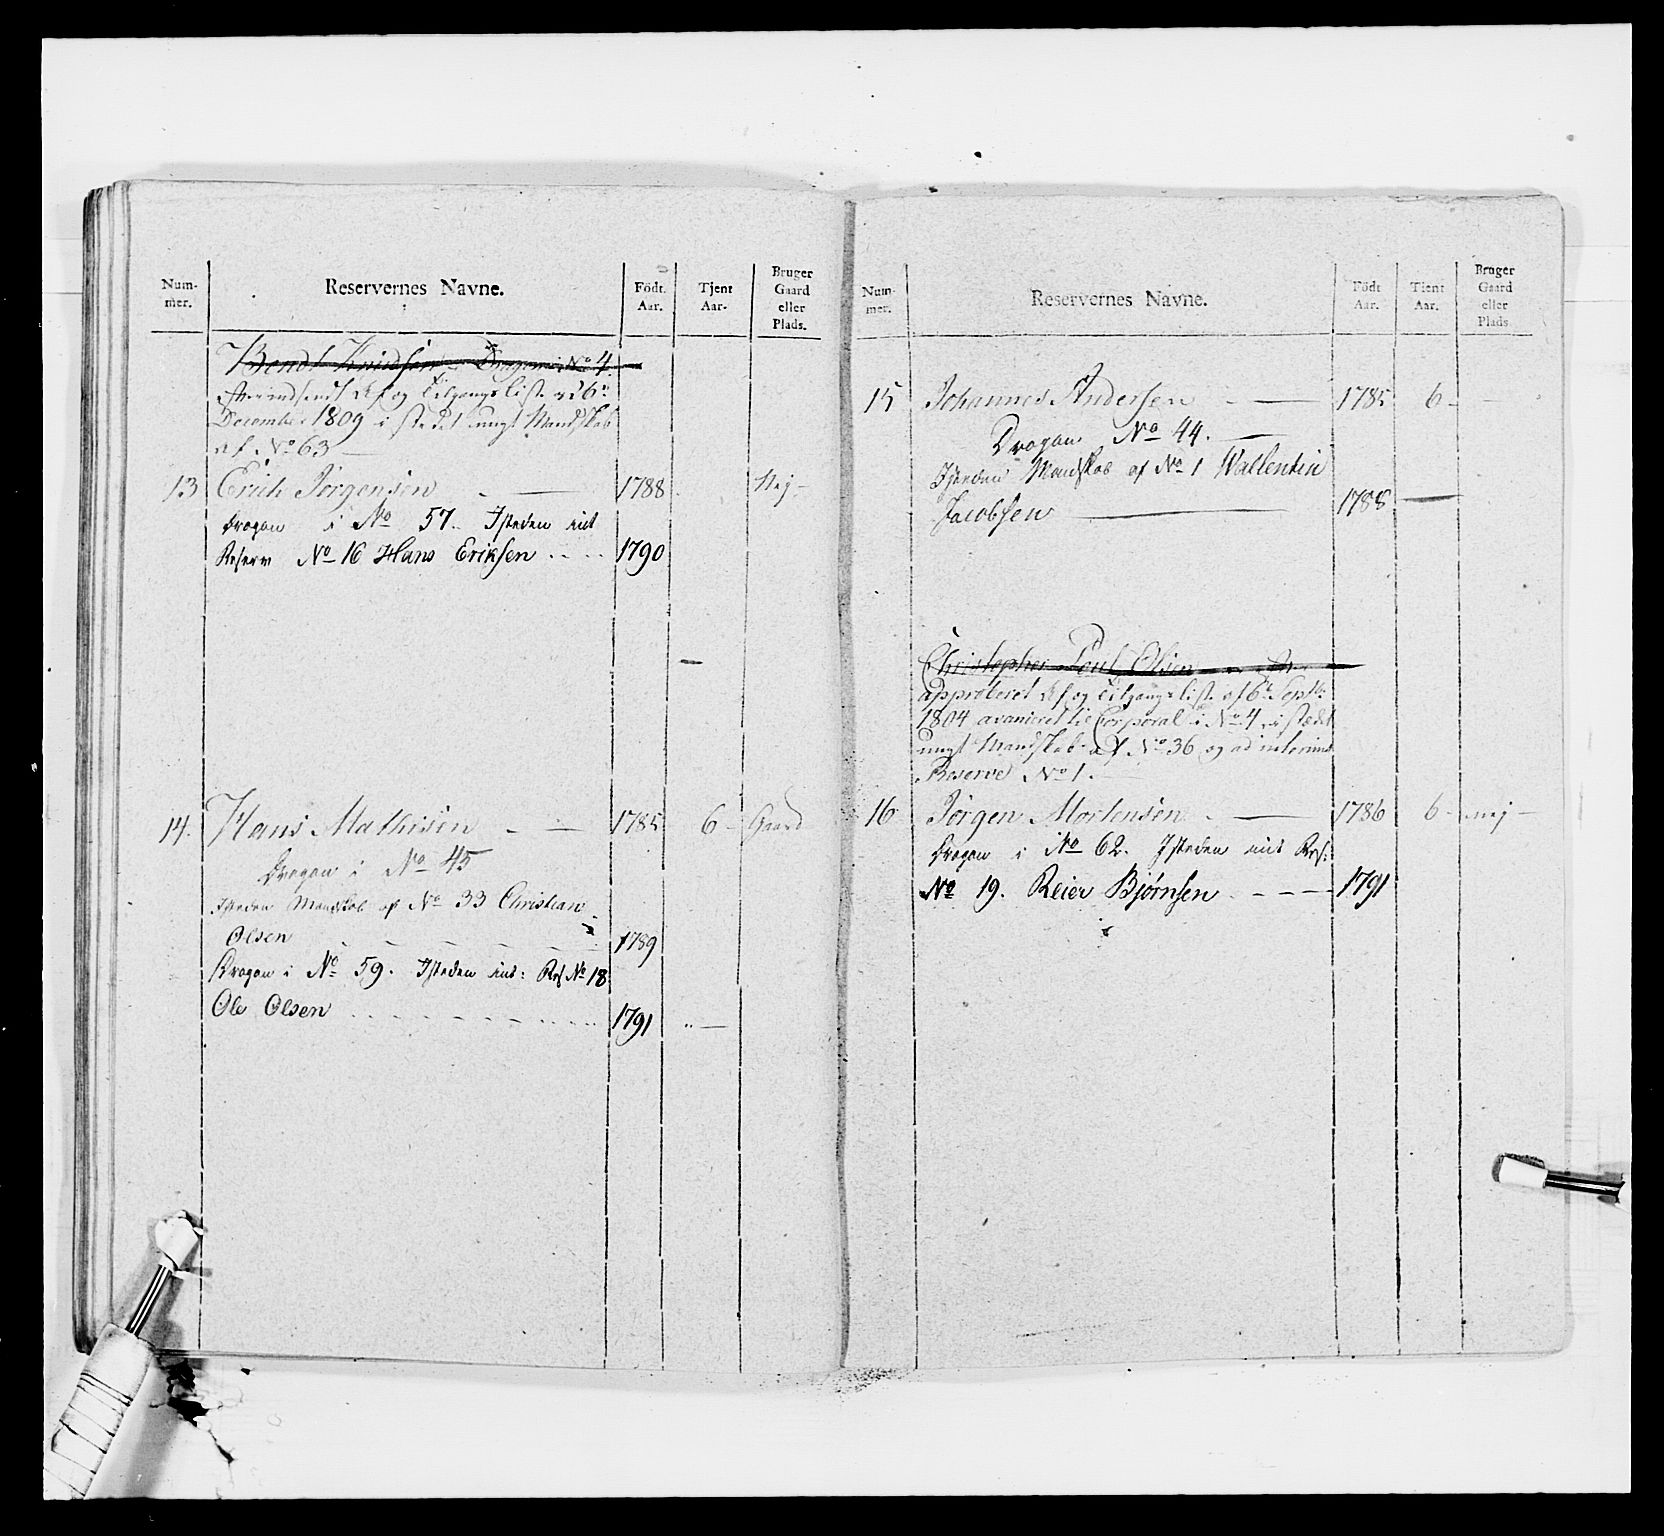 Num-
mer.
Reservernes Navne.
Födt
Aar.
Tjent
Aar.
Bruger
Gaard
eller
Plads.
Bendt Knudsen - Dragon i No 4.
Af og Tilgangsliste af 6te
December 1809 i stedet ungt Mandskab
af No 63
13 Erich Jörgensen 1788 Nej
Dragon i No 57. Isteden int
Reserv No 16 Hans Eriksen 1790
14. Hans Mathisen 1785 6 Gaard
Dragon i No 45
Isteden Mandskab af No 33 Christian
Olsen 1789
Dragon i No 59. Isteden int: Res No 18
Ole Olsen 1791
Num-
mer.
Reservernes Navne.
Födt
Aar.
Tient
Aar.
Bruger
Gaard
eller
Plads.
15 Johannes Andersen 1785 6
Dragon No 44.
Isteden Mandskab af No 1 Wallentin
Jacobsen 1788
Christopher Poul Olsen
approberet Af og Tilgangsliste af 6te Septbr:
1804 avanceret til Corporal i No 4, i stædet
ungt Mandskab af No 36 og ad interims
Reserve No 1.
16 Jörgen Mortensen 1786 6 nej
Dragon i No 62. Isteden int Res:
No 19. Reier Bjørnsen 1791